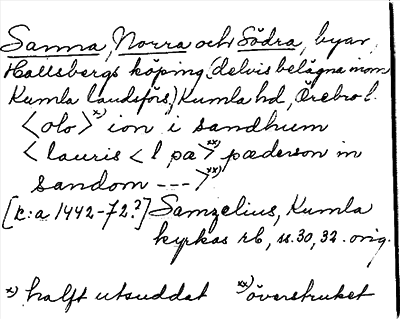 Sanna, Norra och Södra, byar,
Hallsbergs köping (delvis belägna inom
Kumla landsförs.) Kumla hd, Örebro l.
<olo>x) ion i sandhum
<lauris <l pæ>xx) pæderson in
sandom --->xx)
[k: a 1442-72?] Samzelius, Kumla
kyrkas rb, s. 30, 32. orig.
x) halft utsuddat xx) överstruket